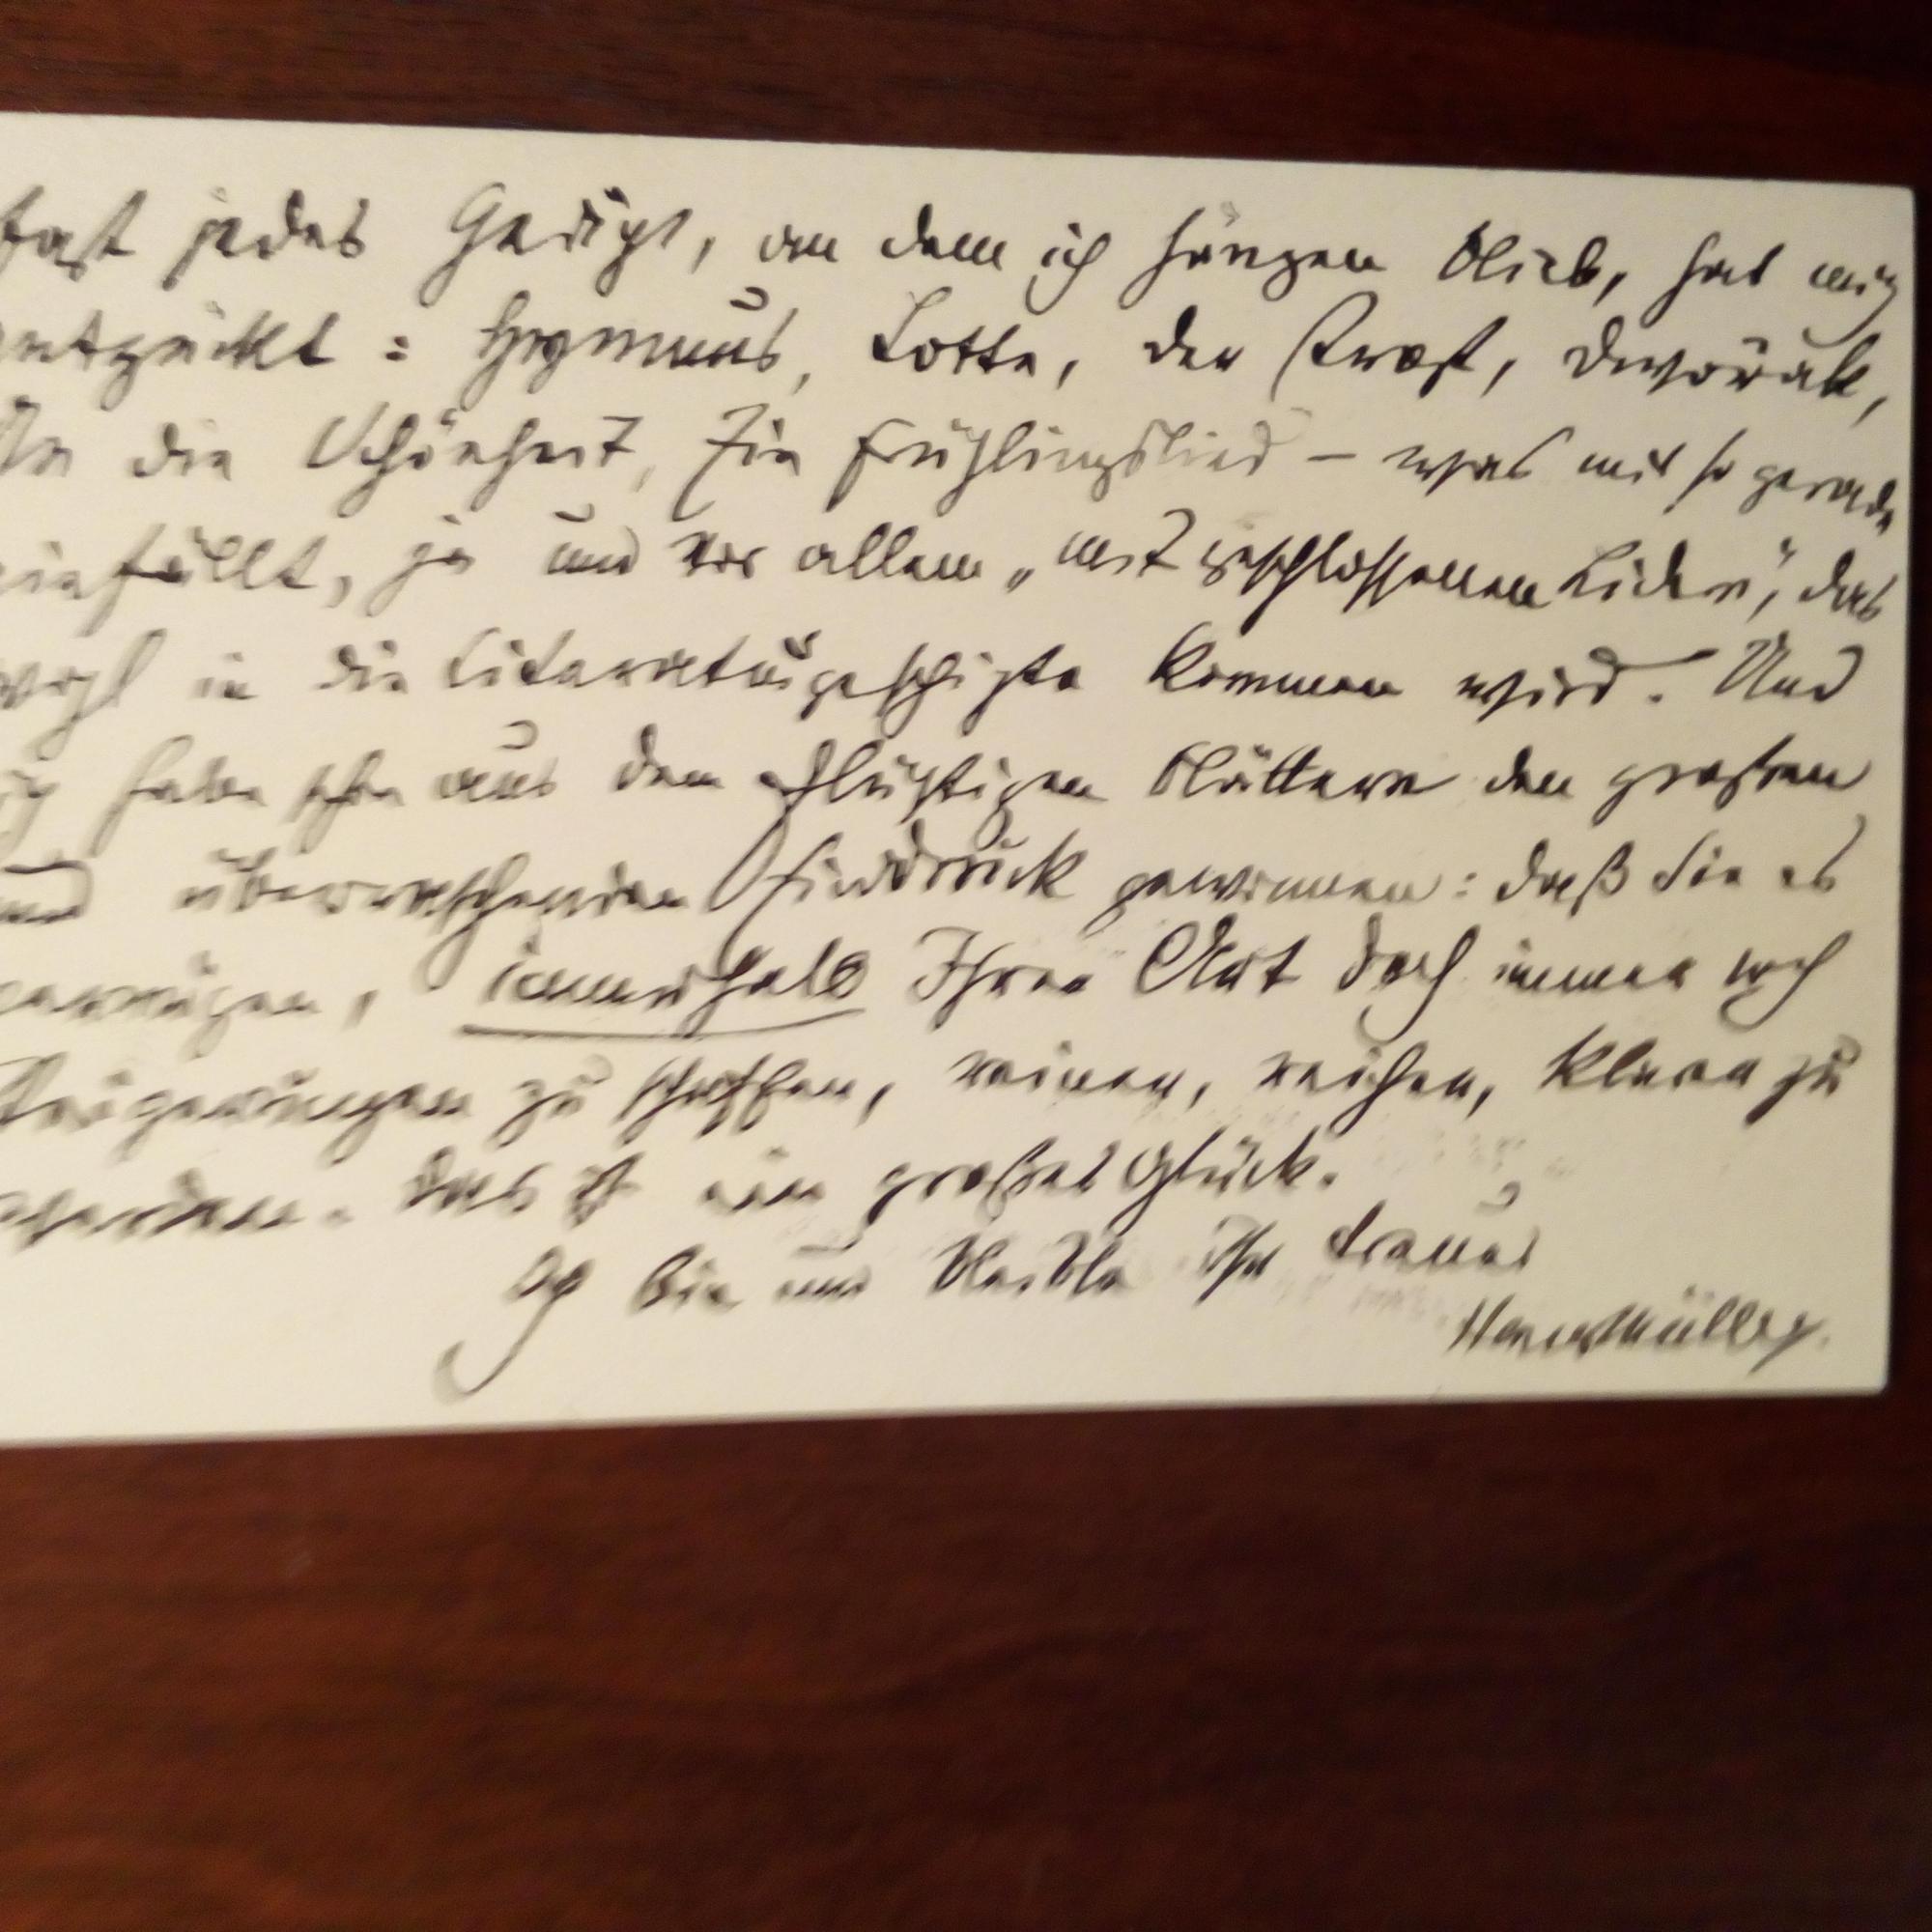 fast jedes Gedicht, an dem ich hängen blieb, hat mich
entzückt: Hymnus, Lotte, der Trost, Dvořak,
An die Schönheit, Ein Frühlingslied – was mir so gerade
einfällt, ja und vor allem „mit geschlossenen Lidern", das
wohl in die Literaturgeschichte kommen wird. Und
ich habe schon aus den flüchtigen Blättern den großen
und überraschenden Eindruck gewonnen: daß Sie es
vermögen, innerhalb Ihrer Art doch immer noch
Steigerungen zu schaffen, reiner, reicher, klarer zu
werden. Das ist ein großes Glück.
Ich bin und bleibe Ihr treuer
Hans Müller.